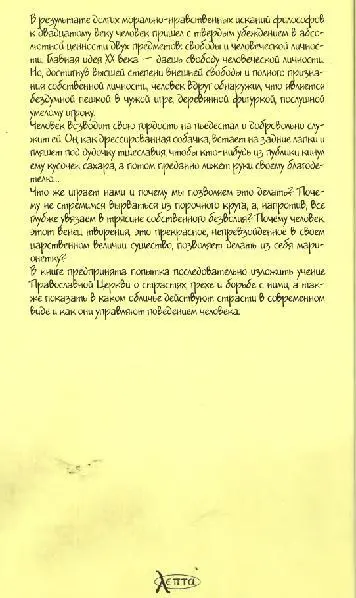 В результате долгих морально-нравственных исканий философов
к двадцатому веку человек пришел с твердым убеждением в абсо-
лютной ценности двух предметов: свободы и человеческой личнос-
ти. Главная идея XX века — даешь свободу человеческой личности.
Но, достигнув высшей степени внешней свободы и полного призна-
ния собственной личности, человек вдруг обнаружил, что является
бездумной пешкой в чужой игре, деревянной фигуркой, послушной
умелому игроку.
Человек возводит свою гордость на пьедестал и добровольно слу-
жит ей. Он, как дрессированная собачка, встает на задние лапки и
пляшет под дудочку тщеславия, чтобы кто-нибудь из публики кинул
ему кусочек сахара, а потом преданно лижет руки своему благоде-
телю...
Что же играет нами и почему мы позволяем это делать? Поче-
му не стремимся вырваться из порочного круга, а, напротив, все
глубже увязаем в трясине собственного безволия? Почему человек,
этот венец творения, это прекрасное, непревзойденное в своем
царственном величии существо, позволяет делать из себя марио-
нетку?
В книге предпринята попытка последовательно изложить учение
Православной Церкви о страстях, грехе и борьбе с ними, а так-
же показать в каком обличье действуют страсти в современном
виде и как они управляют поведением человека.
лепта